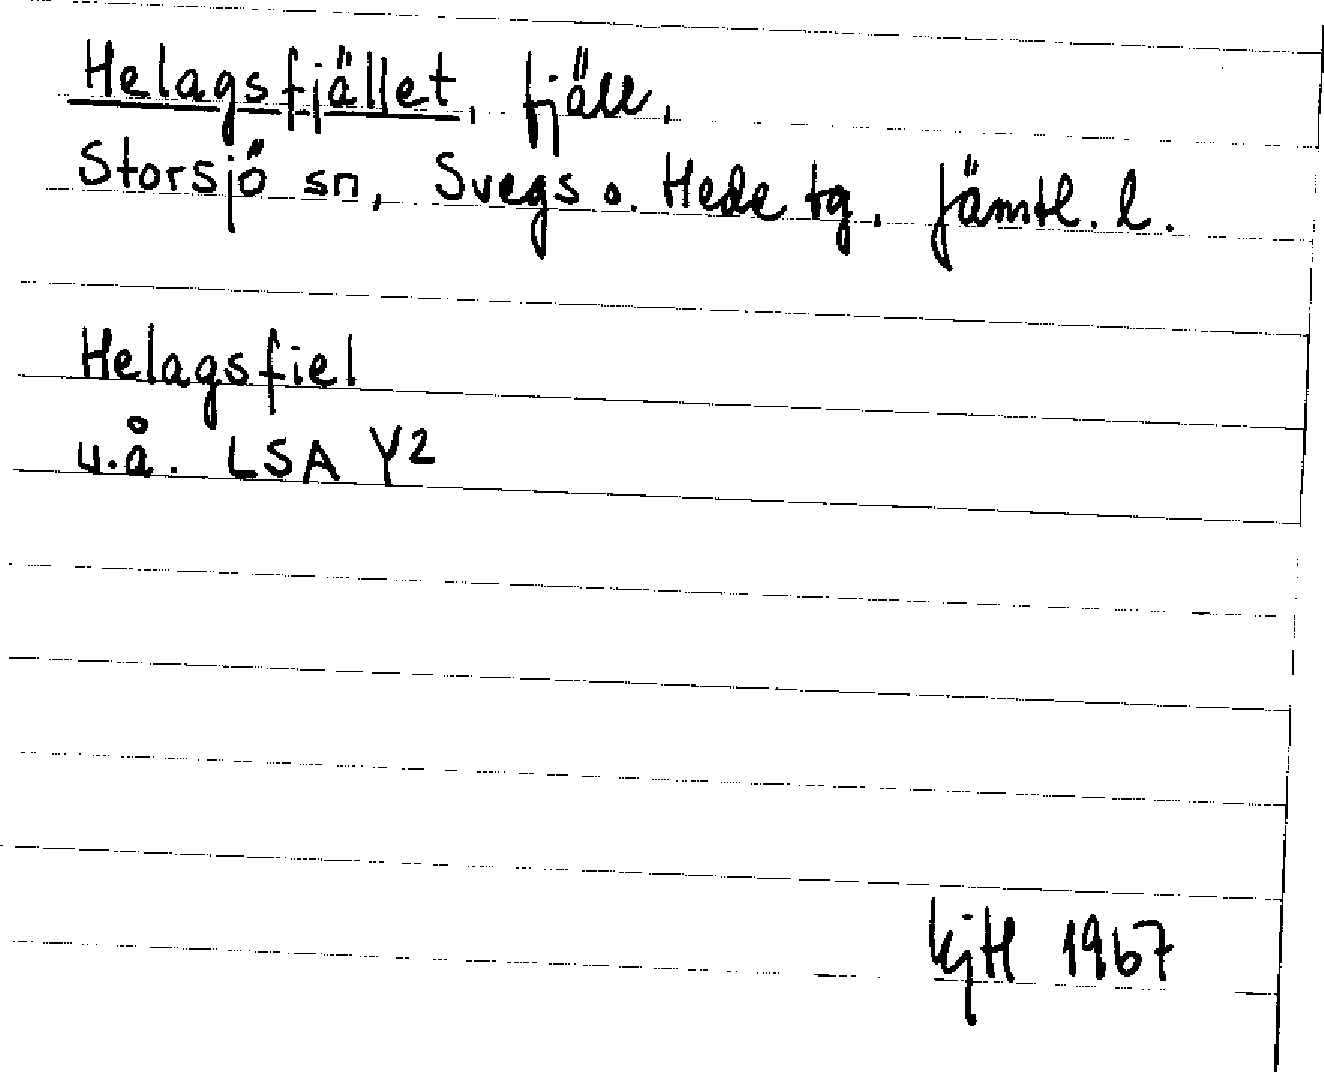 Helagsfjället, fjäll,
Storsjö sn, Svegs o. Hede tg, Jämtl. l.
Helagsfiel
u.å. LSA Y2
KjH 1967